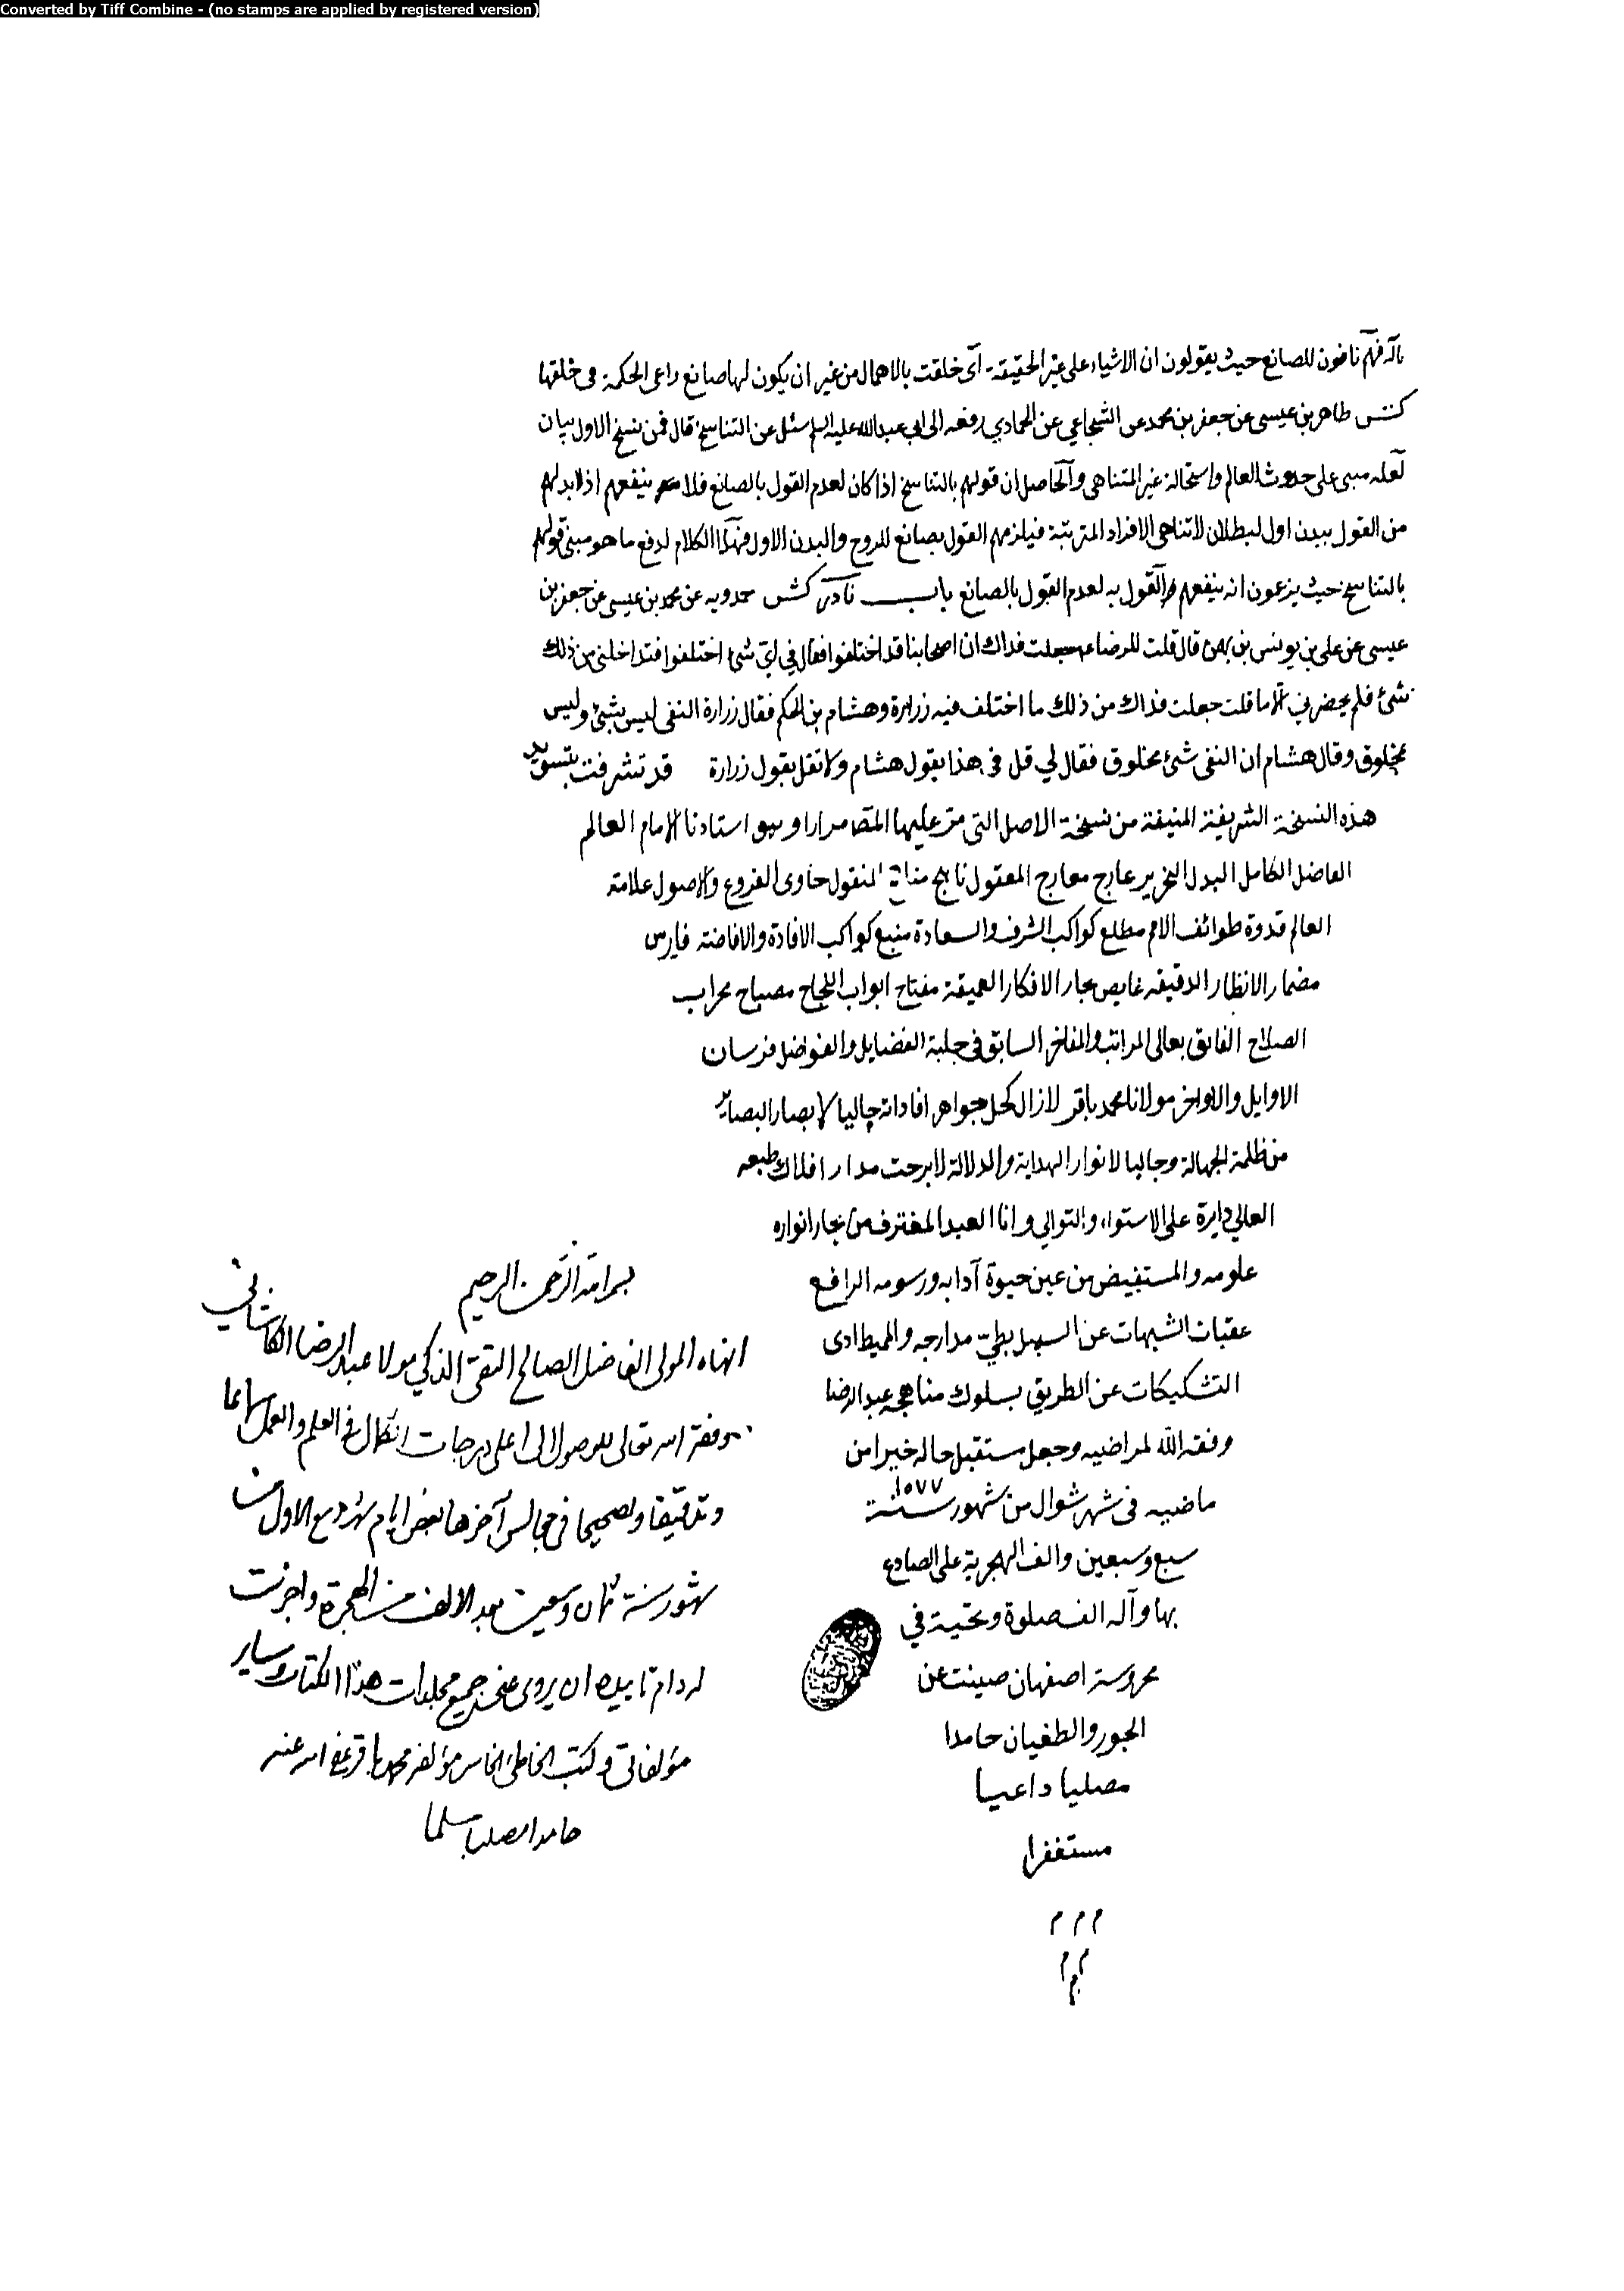 Converted by Tiff Combine - (no stamps are applied by registered version)
نافون للصانع حيث يقولون ان الاشياء على غير الحقيقة اى خلقت بالاهمال من غير ان يكون لها صانع راعى الحكمة فى خلقها
كش طاهر بن عيسى عن جعفر بن محمد عن الشجاعي عن الحمادي رفعه الى ابى عبدالله عليه السلم سئل عن التناسخ قال فمن نسخ الاول بيان
لعله مبنى على حدوث العالم واستحالة غير المتناهى والحاصل ان قولهم بالتناسخ اذا كان لعدم القول بالصانع فلا ينفعهم اذ لا بد لهم
من القول ببدن اول لبطلان لاتناهى الافراد المترتبة فيلزمهم القول بصانع للروح والبدن الاول فهذا الكلام لدفع ما هو مبنى قولهم
بالتناسخ حيث يزعمون انه ينفعهم القول به لعدم القول بالصانع باب نادر كش حمدويه عن محمد بن عيسى عن جعفر بن
عيسى عن على بن يونس بن بهمن قال قلت للرضا ع جعلت فداك ان اصحابنا قد اختلفوا فقال فى اى شئ اختلفوا فتداخلنى من ذلك
شئ فلم يحضرني الا ما قلت جعلت فداك من ذلك ما اختلف فيه زرارة وهشام بن الحكم فقال زرارة النفى ليس بشئ وليس
بمخلوق وقال هشام ان النفى شئ مخلوق فقال لي قل فى هذا بقول هشام ولا تقل بقول زرارة قد تشرفت بتسويد
هذه النسخة الشريفة المنيفة من نسخة الاصل التى مر عليها مرارا وهو استادنا الامام العالم
الفاضل الكامل البدل النحرير عارج معارج المعقول ناهج مناهج المنقول حاوى الفروع والاصول علامة
العالم قدوة طوائف الامم مطلع كواكب الشرف والسعادة منبع كواكب الافادة والافاضة فارس
مضمار الانظار الدقيقه غايص بحار الافكار العميقة مفتاح ابواب النجاح مصباح محراب
الصلاح الفايق بعالى المراتب والمفاخر السابق فى حلبة الفضايل والفواضل فرسان
الاوايل والاواخر مولانا محمد باقر لازال كحل جواهر افاداته جاليا لابصار البصاير
من ظلمة الجهالة وجالبا لانوار الهداية والدلالة لا برحت مدار افلاك طبعه
العالي دايرة على الاستواء والتوالي وانا العبد المغترف من بحار انواره
علومه والمستفيض من عين حيوة آدابه ورسومه الرافع
عقبات الشبهات عن السبيل بطي مدارجه والمميط اذى
التشكيكات عن الطريق بسلوك مناهجه عبد الرضا
وفقه الله لمراضيه وجعل مستقبل حاله خيرا من
ماضيه فى شهر شوال من شهور سنة ١٠٧٧
سبع وسبعين والف الهجرية على الصادع
بها وآله الف صلوة وتحية في
محروسة اصفهان صينت عن
الجور والطغيان حامدا
مصليا داعيا
مستغفرا
م م م
م م
م
بسم الله الرحمن الرحيم
انهاه المولى الفاضل الصالح التقى الذكي مولا عبد الرضا الكاشاني
وفقه الله تعالى للوصول الى اعلى درجات الكمال فى العلم والعمل سماعا
وتدقيقا وتصحيحا فى مجالس آخرها بعض ايام شهر ربيع الاول من
شهور سنة ثمان وسبعين بعد الالف من الهجرة واجزت
له دام تاييده ان يروى عنى جميع مجلدات هذا الكتاب وساير
مؤلفاتى وكتب الخاطئ الخاسر مؤلفه محمد باقر عفى الله عنه
حامدا مصليا مسلما